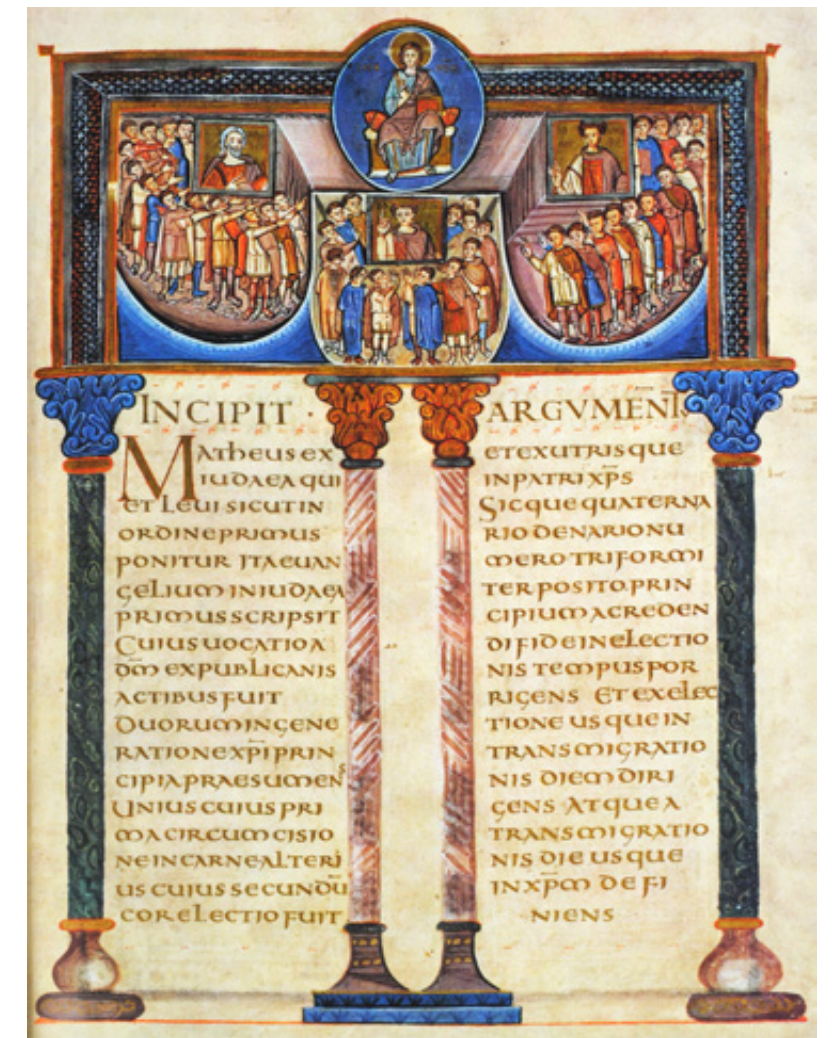 INCIPIT · ARGVMENT̄
MATHEUS EX
IUDAEA QUI
ET LEUI SICUT IN
ORDINE PRIMUS
PONITUR ITA EUAN
GELIUM IN IUDAEA
PRIMUS SCRIPSIT
CUIUS UOCATIO A
DM̄ EX PUBLICANIS
ACTIBUS FUIT
DUORUM IN GENE
RATIONE XP̄I PRIN
CIPIA PRAESUMENS
UNIUS CUIUS PRI
MA CIRCUMCISIO
NE IN CARNE ALTERI
US CUIUS SECUNDŪ
COR ELECTIO FUIT
ET EX UTRISQUE
IN PATRI XP̄S
SICQUE QUATERNA
RIO DENARIO NU
MERO TRIFORMI
TER POSITO PRIN
CIPIUM A CREDEN
DI FIDE IN ELECTIO
NIS TEMPUS POR
RIGENS ET EX ELEC
TIONE USQUE IN
TRANSMIGRATIO
NIS DIEM DIRI
GENS ATQUE A
TRANSMIGRATIO
NIS DIE USQUE
IN XP̄M DEFI
NIENS